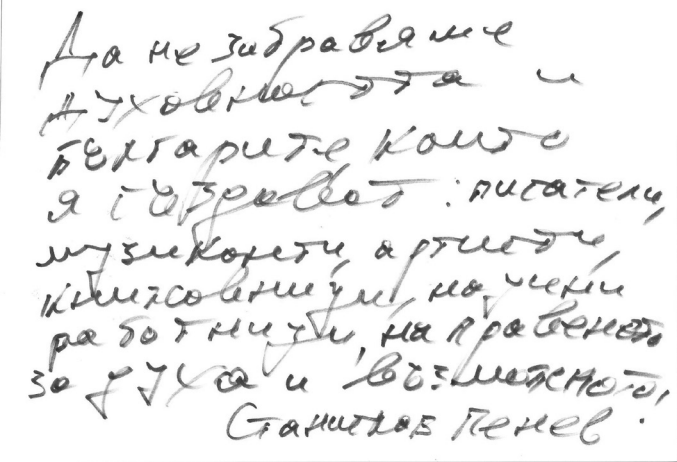 Да не забравяме
духовността и
българите които
я създават : писатели,
музиканти, артисти,
книжовници, научни
работници, направеното
за духа и възможното,
Станислав Пенев.